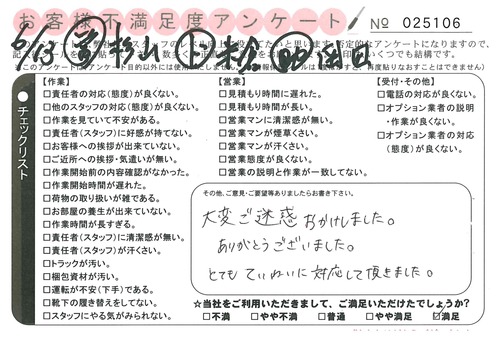 お客様不満足度アンケート
№ 025106
6/13
チェックリスト
【作業】
□責任者の対応(態度)が良くない。
□他のスタッフの対応(態度)が良くない。
□作業を見ていて不安がある。
□責任者(スタッフ)に好感が持てない。
□お客様への挨拶が出来ていない。
□ご近所への挨拶・気遣いが無い。
□作業開始前の内容確認がなかった。
□作業開始時間が遅れた。
□荷物の取り扱いが雑である。
□お部屋の養生が出来ていない。
□作業時間が長すぎる。
□責任者(スタッフ)に清潔感が無い。
□責任者(スタッフ)が汗くさい。
□トラックが汚い。
□梱包資材が汚い。
□運転が不安(下手)である。
□靴下の履き替えをしてない。
□スタッフにやる気がみられない。
【営業】
□見積もり時間に遅れた。
□見積もり時間が長い。
□営業マンに清潔感が無い。
□営業マンが煙草くさい。
□営業マンが汗くさい。
□営業態度が良くない。
□営業の説明と作業が一致してない。
【受付・その他】
□電話の対応が良くない。
□オプション業者の説明
・作業が良くない。
□オプション業者の対応
(態度)が良くない。
その他、ご意見・ご要望等ありましたらお書き下さい。
大変ご迷惑おかけしました。
ありがとうございました。
とてもていねいに対応して頂きました。
☆当社をご利用いただきまして、ご満足いただけたでしょうか?
□不満 □やや不満 □普通 □やや満足 ☑満足